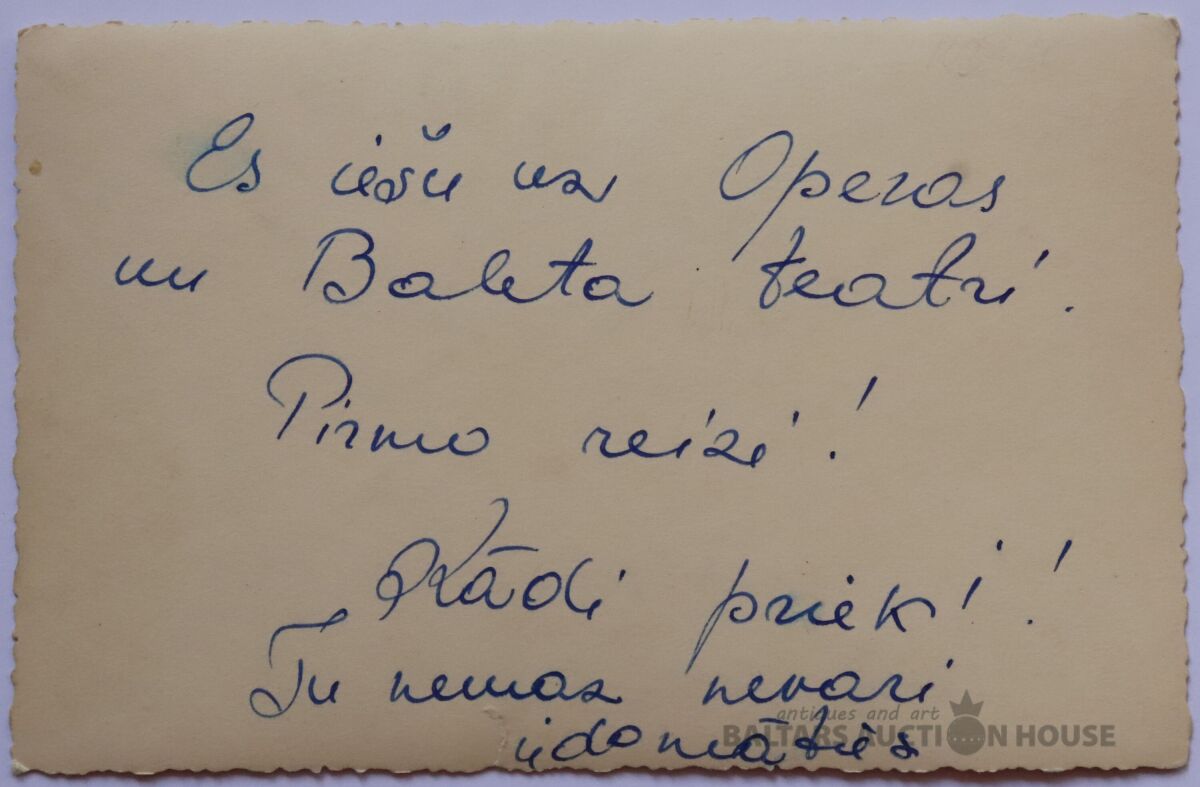 Es iešu uz Operas
un Baleta teātri.
Pirmo reizi!
Kādi prieki!
Tu nemaz nevari
idomāties
antiques and art
BALTARS AUCTION HOUSE